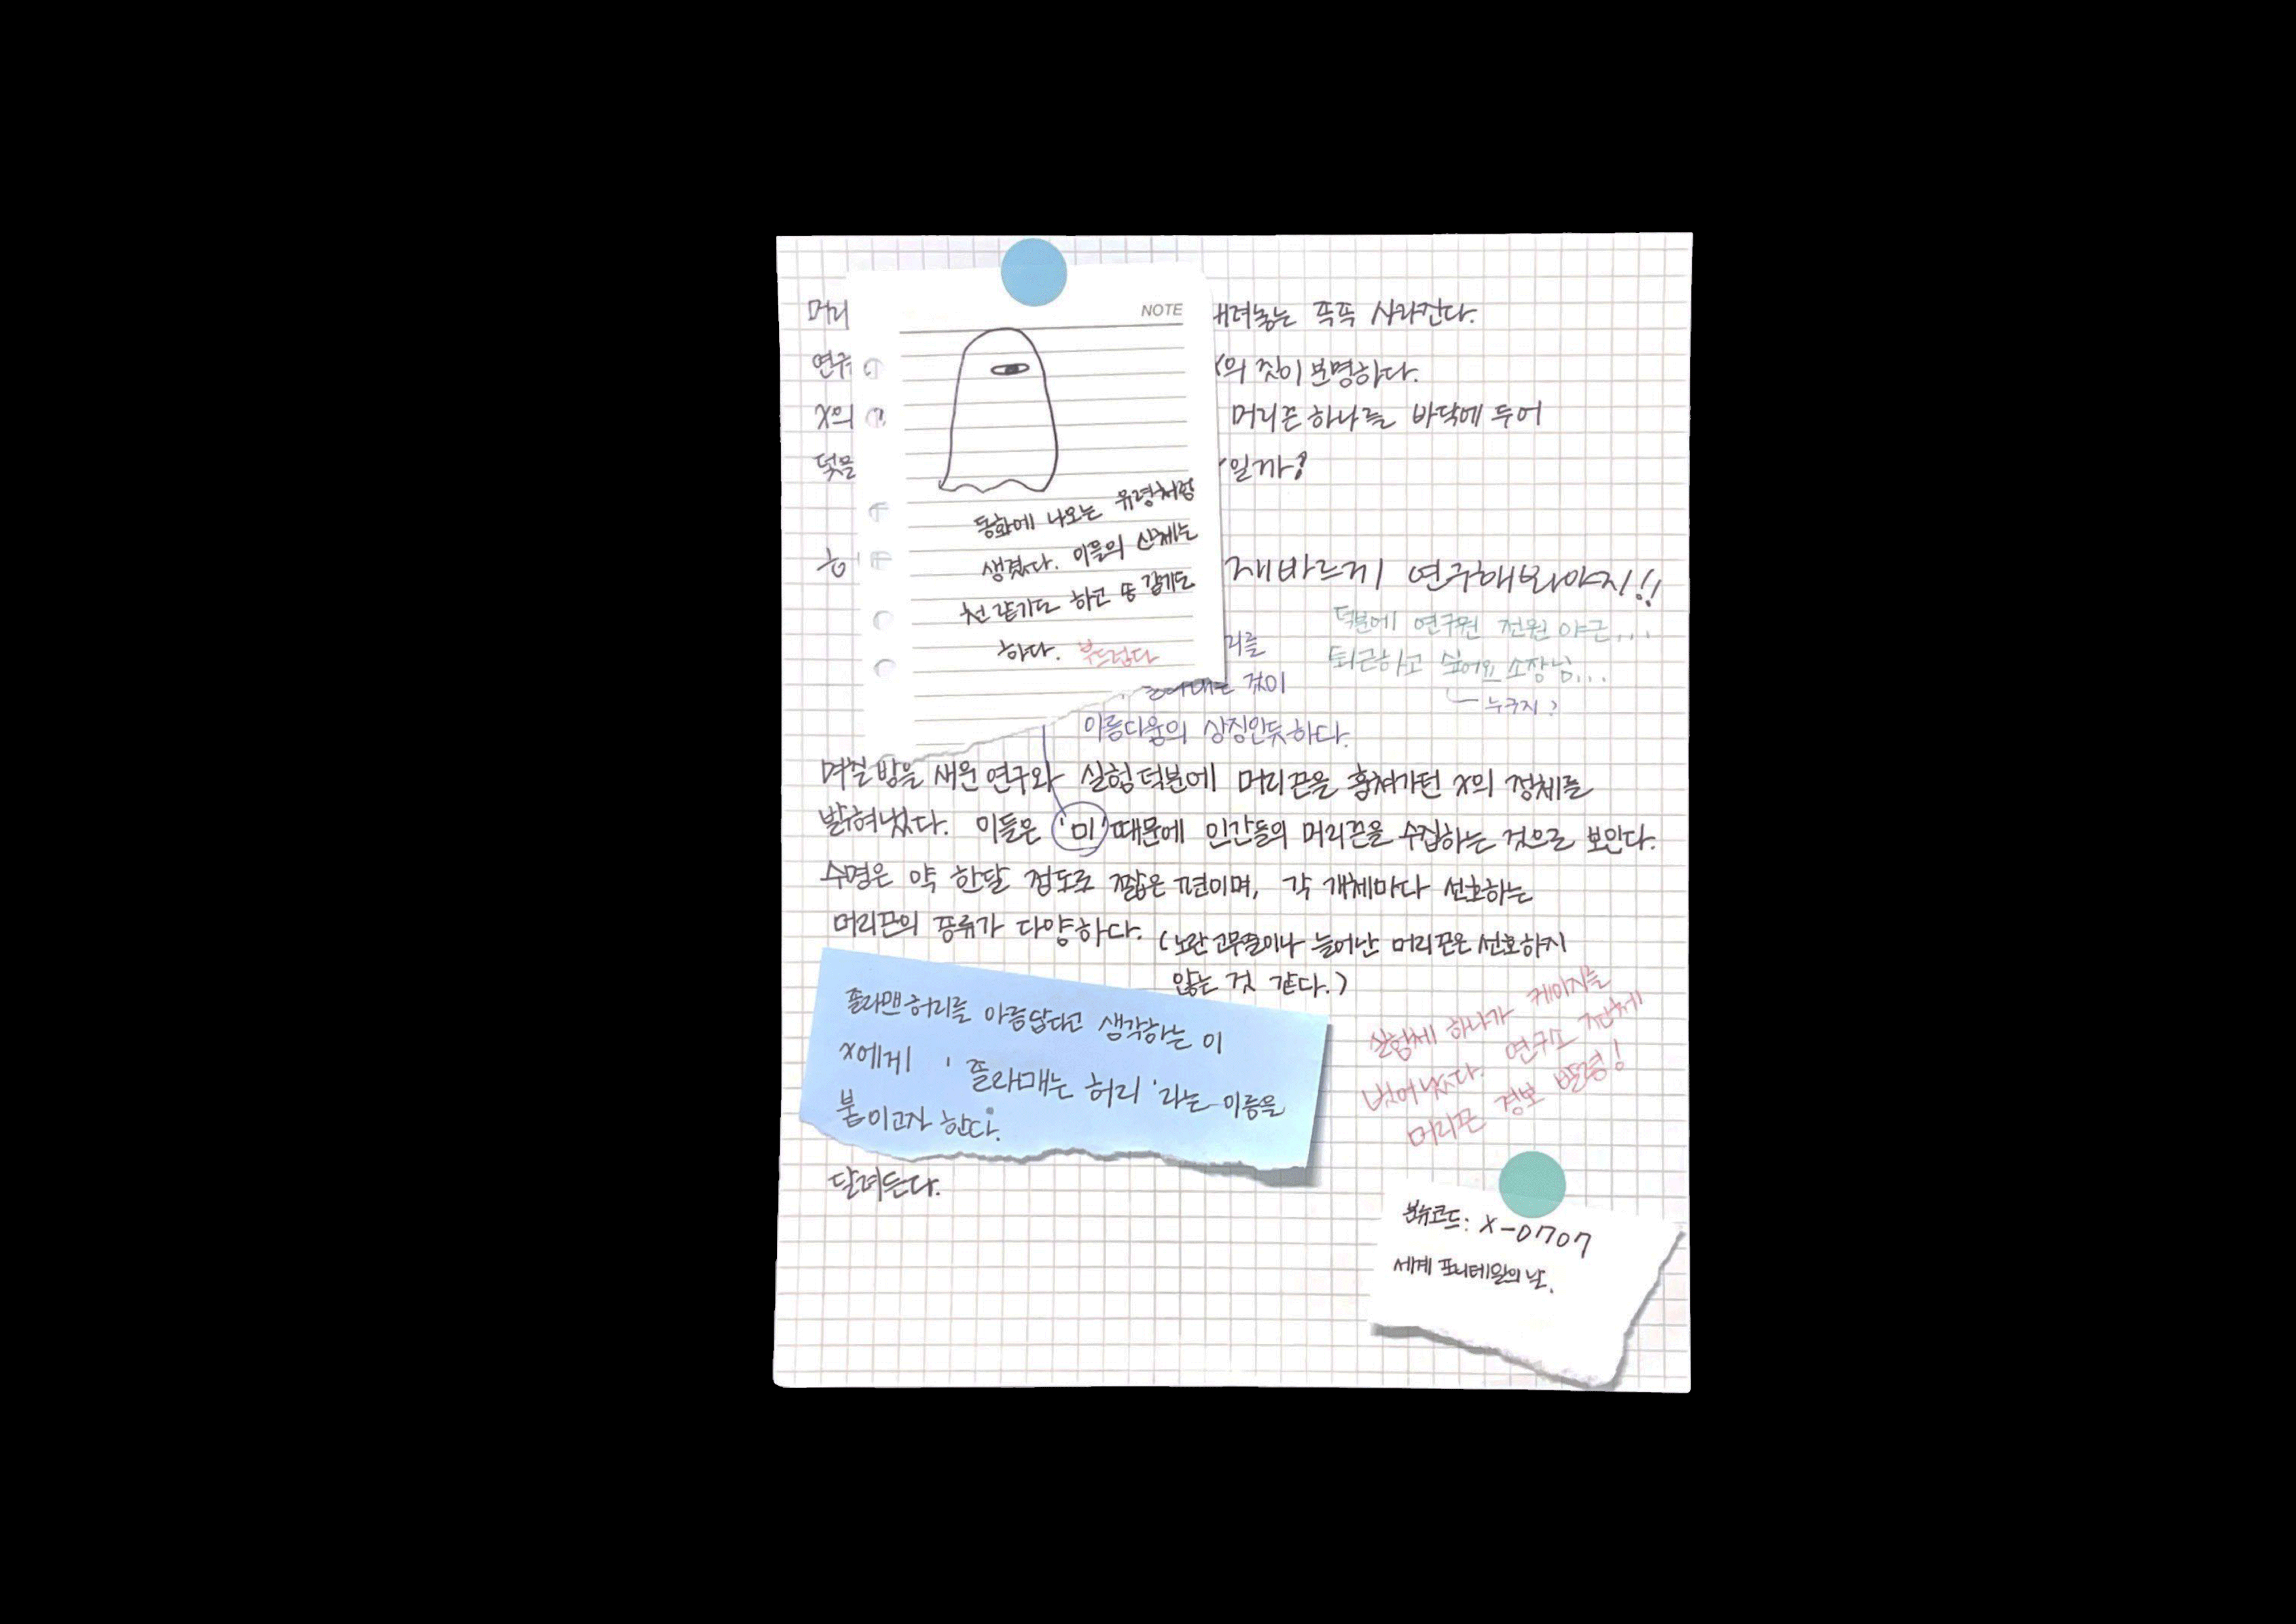 머리
내려놓는 족족 사라진다.
연구
X의 짓이 분명하다.
X의
머리끈 하나를 바닥에 두어
덫을
일까?
NOTE
동화에 나오는 유령처럼
생겼다. 이들의 신체는
천 같기도 하고 솜 같기도
하다. 부드럽다
흠
재바르게 연구해봐야지!!
덕분에 연구원 전원 야근...
퇴근하고 싶어요 소장님...
누구지?
리를
것이
아름다움의 상징인듯하다.
며칠 밤을 새운 연구와 실험 덕분에 머리끈을 훔쳐가던 X의 정체를
밝혀냈다. 이들은 '미' 때문에 인간들의 머리끈을 수집하는 것으로 보인다.
수명은 약 한달 정도로 짧은 편이며, 각 개체마다 선호하는
머리끈의 종류가 다양하다. (노란 고무줄이나 늘어난 머리끈은 선호하지
않는 것 같다.)
졸라맨 허리를 아름답다고 생각하는 이
X에게 '졸라매는 허리'라는 이름을
붙이고자 한다.
실험체 하나가 케이지를
벗어났다. 연구소 전체에
머리끈 경보 발령!
달려든다.
분류코드: X-0707
세계 포니테일의 날.